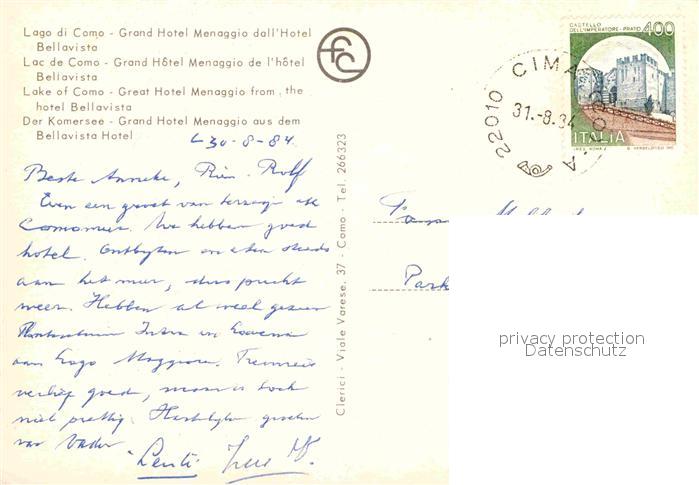 Lago di Como - Grand Hotel Menaggio dall'Hotel
Bellavista
Lac de Como - Grand Hôtel Menaggio de l'hôtel
Bellavista
Lake of Como - Great Hotel Menaggio from the
hotel Bellavista
Der Komersee - Grand Hotel Menaggio aus dem
Bellavista Hotel
30-8-84
Beste Anneke, Rien, Rolf
Even een groet van het
Comomeer. We hebben goed
hotel. Ontbijten en eten steeds
aan het meer, dus pracht
weer. Hebben al veel gezien
Intra en
aan Lago Maggiore. Treinreis
verliep goed, maar is toch
niet prettig. Hartelijke groeten
van Vader
Clerici - Viale Varese, 37 - Como - Tel. 266323
CASTELLO
DELL'IMPERATORE - PRATO 400
ITALIA
22010 CIMA
31.-8.84
Park
privacy protection
Datenschutz